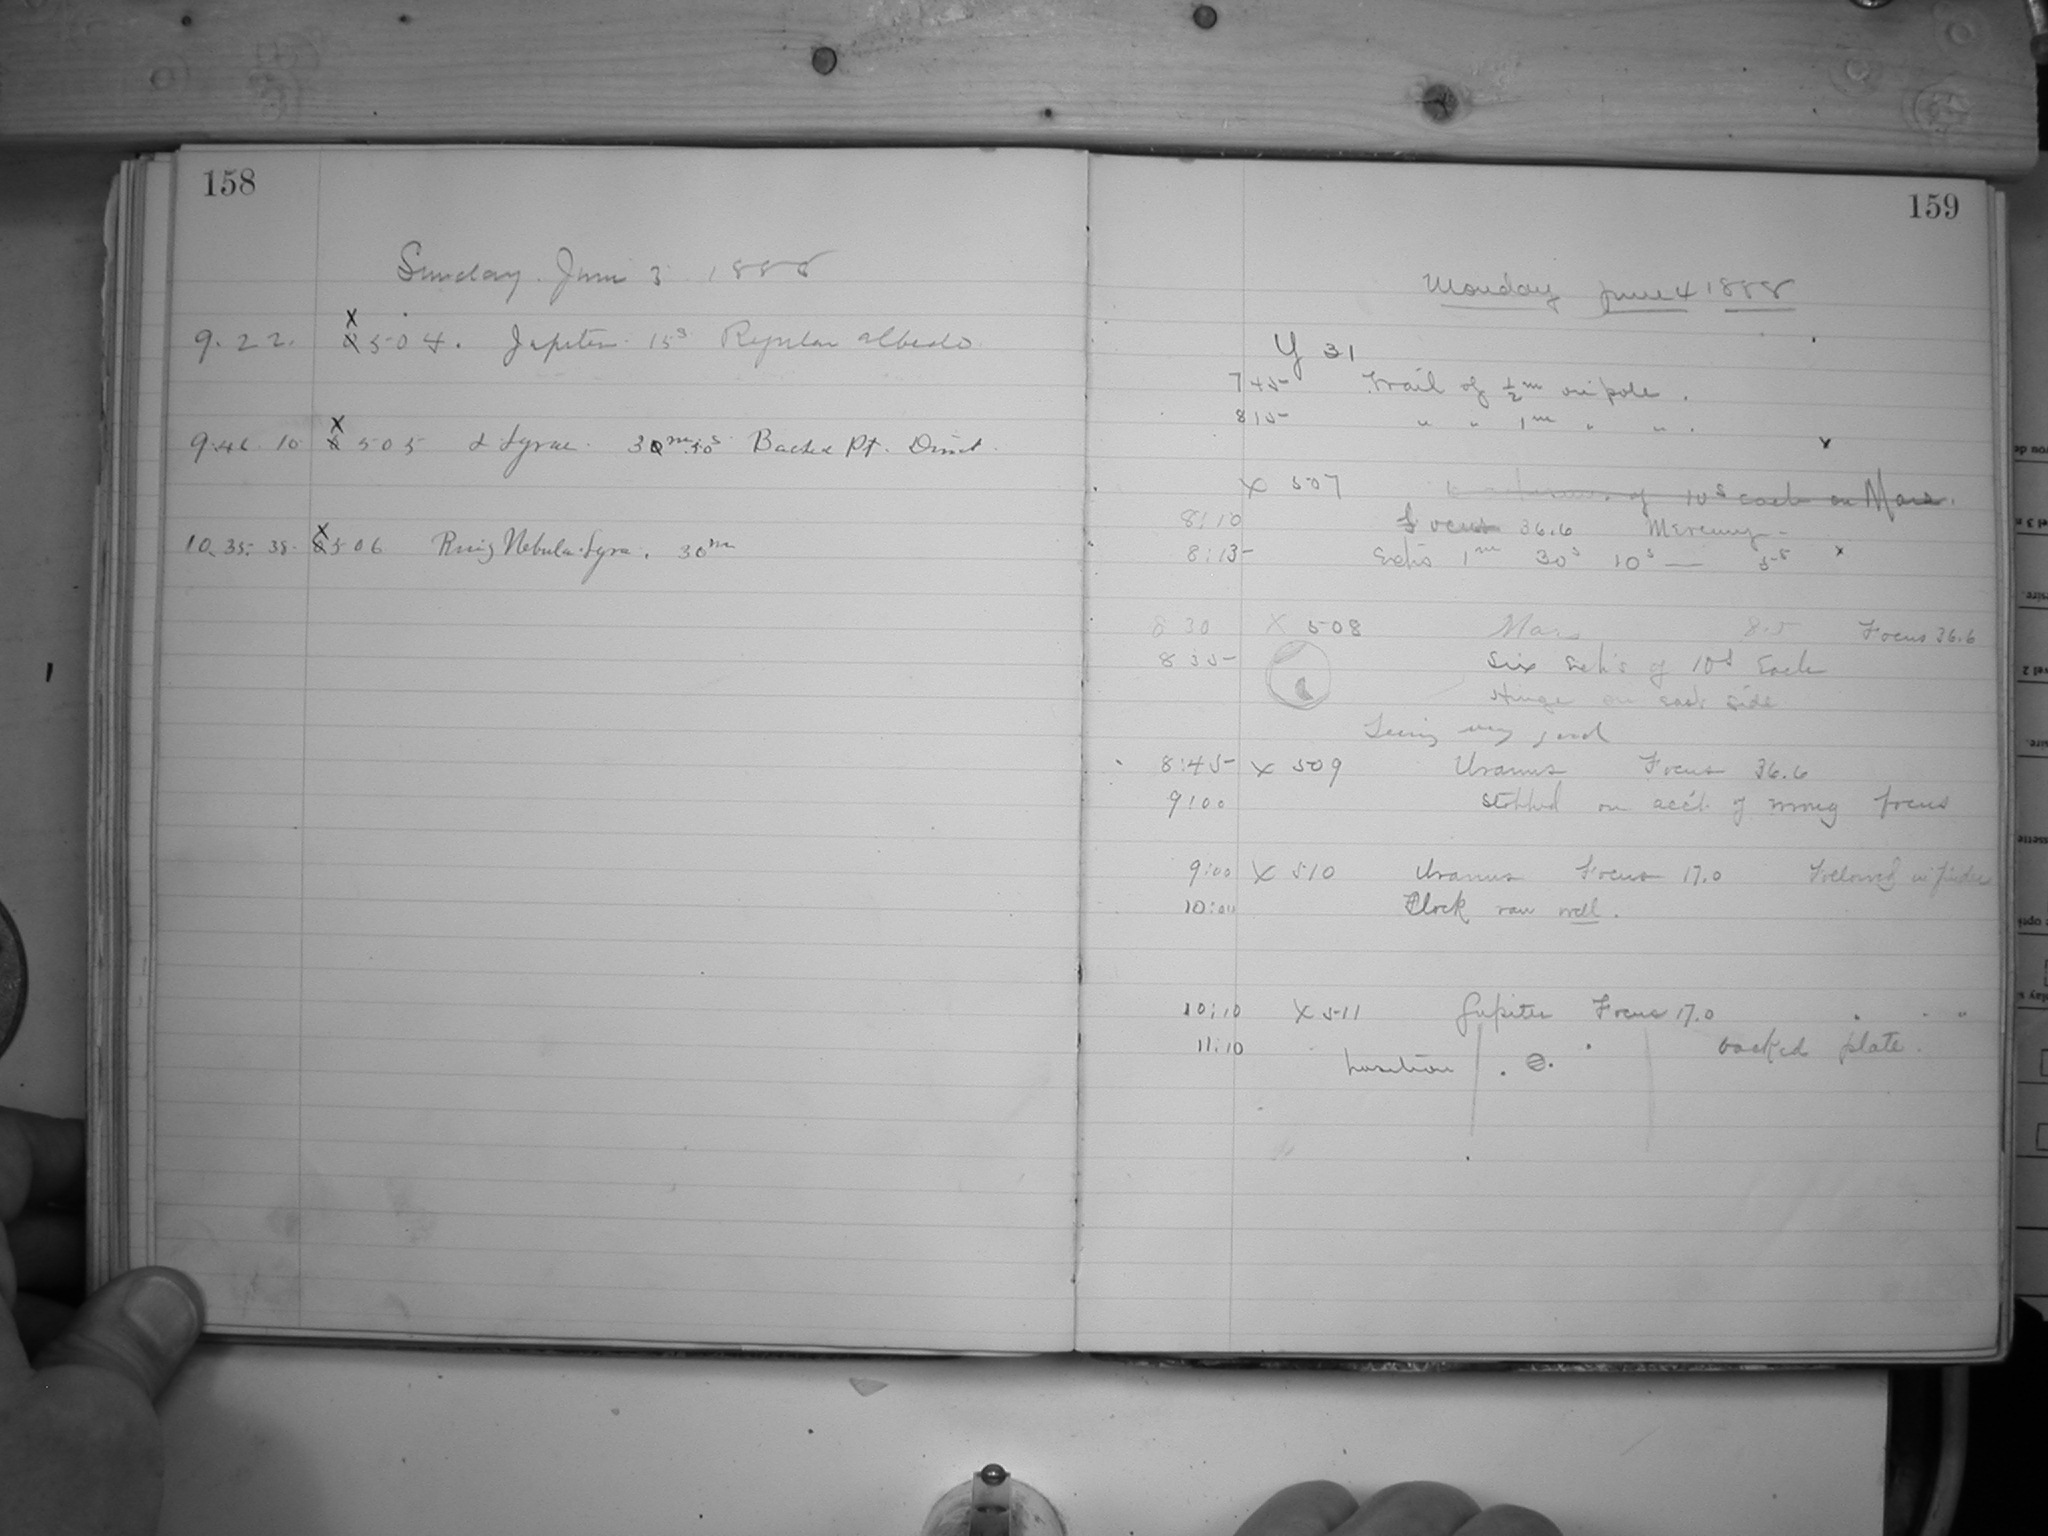 158
Sunday. June 3. 1888
X
9.22. 504. Jupiter. 15s Regular albedo.
X
9.46.10 505 α Lyrae. 30m 30s Backed Pt. Direct.
X
10.35.35. 506 Ring Nebula Lyra. 30m
159
Monday June 4 1888
Y 31
7 45 Trail of ½m on pole.
8 15 " " 1m " " .
X 507 of 10s each on Mars.
8:10 Focus 36.6 Mercury
8:13 Exp's 1m 30s 10s — 5s x
8 30 X 508 Mars 8.5 Focus 36.6
8 35 Six Exh's of 10s Each
Hinge on East side
Seeing very good
8:45 X 509 Uranus Focus 36.6
9:00 stopped on acc't of wrong focus
9:00 X 510 Uranus Focus 17.0 Followed in finder
10:00 Clock ran well.
10:10 X 511 Jupiter Focus 17.0 " " "
11:10 backed plate.
position